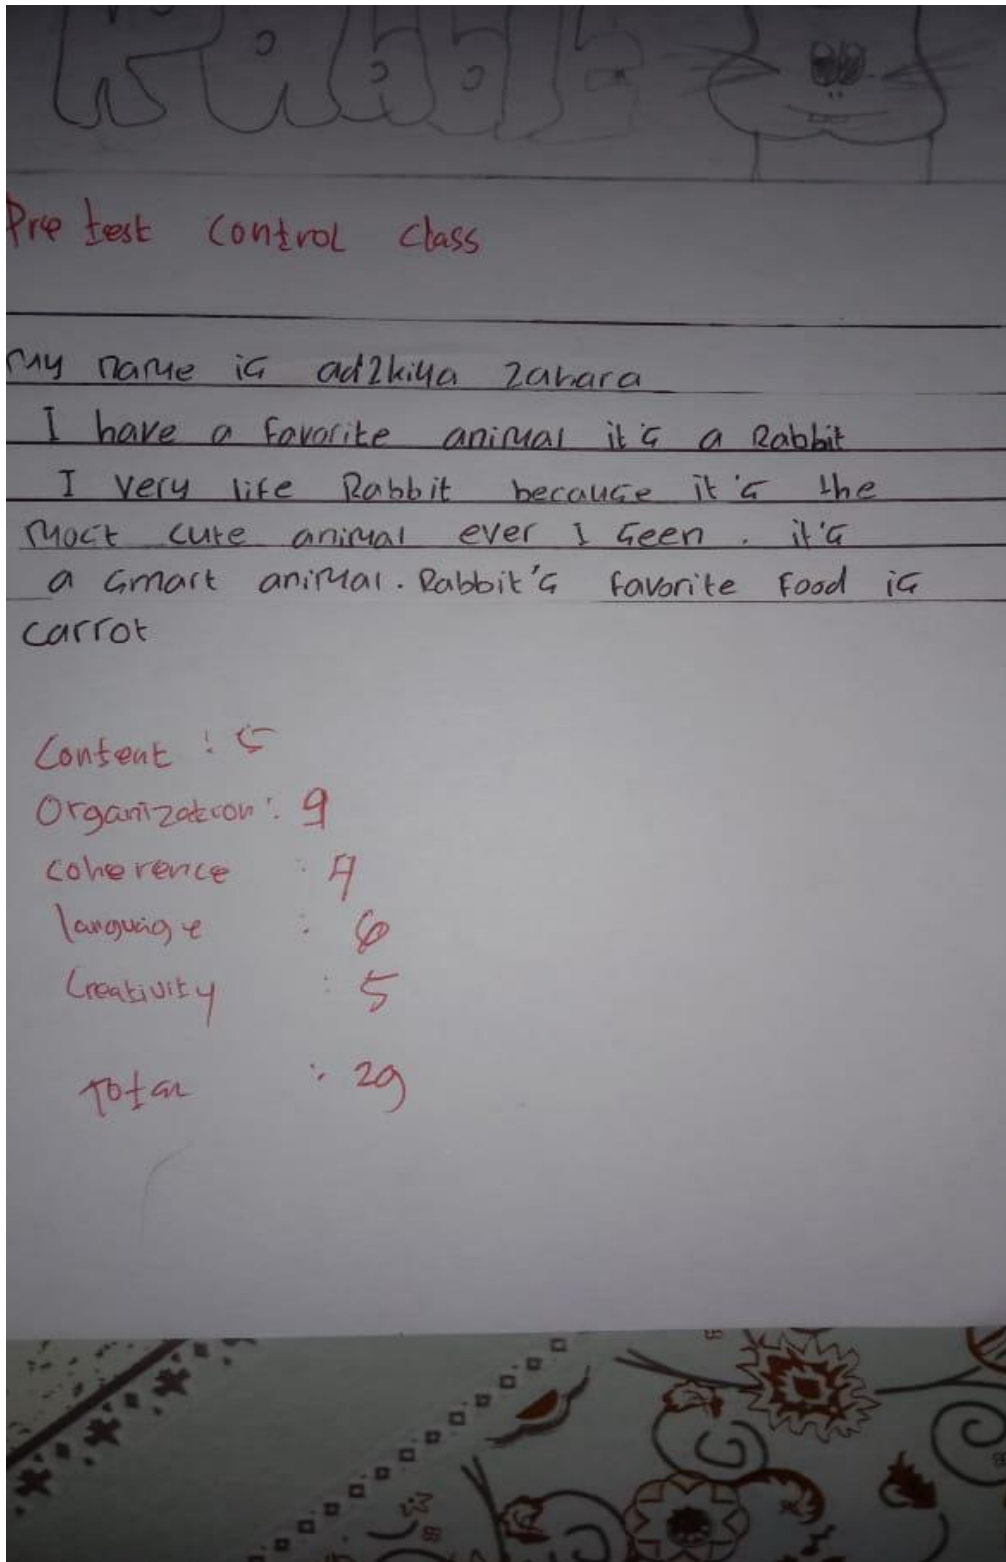 Rabbit
Pre test control class
My name is adzkiya zahara
I have a favorite animal it's a Rabbit
I very life Rabbit because it's the
most cute animal ever I seen. it's
a smart animal. Rabbit's favorite food is
carrot
Content : 5
Organization : 9
coherence : 4
language : 6
Creativity : 5
Total : 29